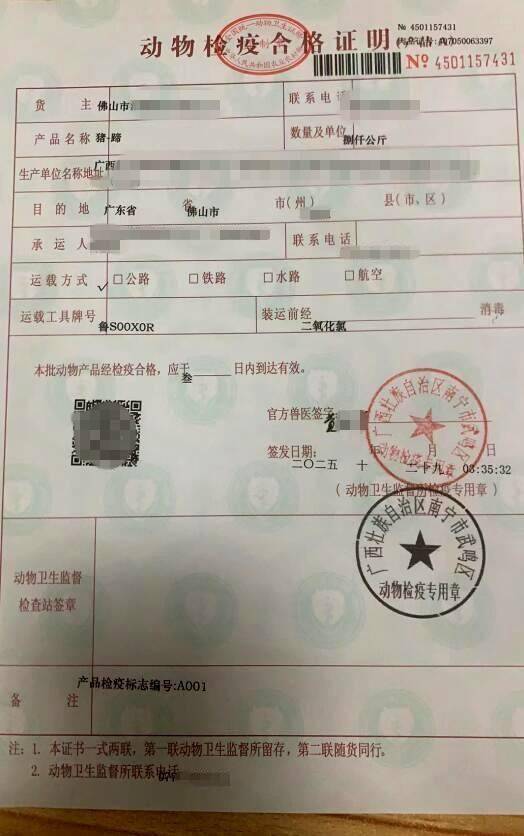 动物检疫合格证明(产品A)
全国统一动物卫生证章
№ 4501157431
№ 4501157431
货 主 佛山市 联系电话
产品名称 猪-蹄 数量及单位 捌仟公斤
生产单位名称地址 广西
目的地 广东省 省 佛山市 市(州) 县(市、区)
承运人 联系电话
运载方式 ✓ □公路 □铁路 □水路 □航空
运载工具牌号 鲁S00X0R 装运前经 二氧化氯 消毒
本批动物产品经检疫合格,应于 叁 日内到达有效。
官方兽医签字
签发日期: 二〇二五 年 十 月 二十九 日 03:35:32
(动物卫生监督所检疫专用章)
广西壮族自治区南宁市武鸣区
动物检疫专用章
广西壮族自治区南宁市武鸣区
动物检疫专用章
动物卫生监督
检查站签章
备 注 产品检疫标志编号:A001
注:1. 本证书一式两联,第一联动物卫生监督所留存,第二联随货同行。
2. 动物卫生监督所联系电话